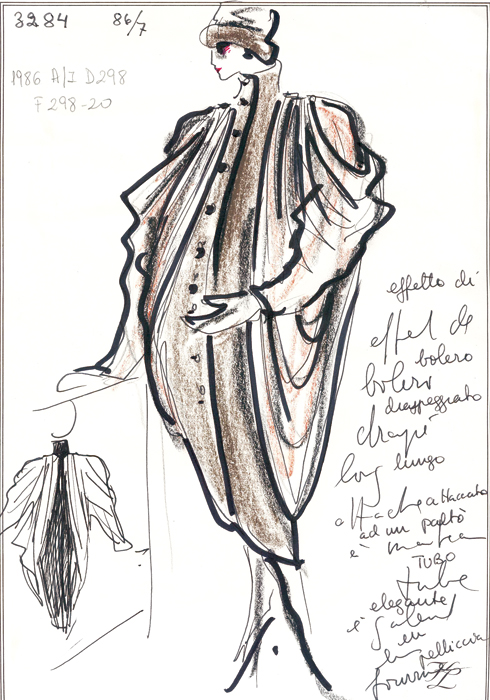 3284 86/7
1986 A/I D298
F 298-20
effetto di
effet de
bolero
bolero
drappeggiato
drapé
long lungo
attaché attaccato
ad un paltò
è
TUBO
tube
elegante
è galant
en
pelliccia